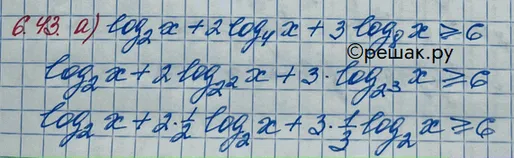 6.43. а) log₂x + 2log₄x + 3log₈x ≥ 6
©решак.ру
log₂x + 2log₂²x + 3·log₂³x ≥ 6
log₂x + 2·1/2 log₂x + 3·1/3 log₂x ≥ 6